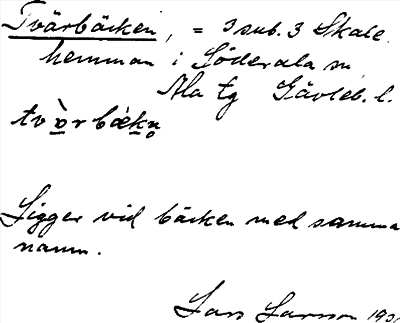 Tvärbäcken, = 3 sub. 3 Skate
hemman i Söderala sn,
Ala tg Gävleb. l.
tvὰrbækn̥
Ligger vid bäcken med samma
namn.
Lars Larsson 193